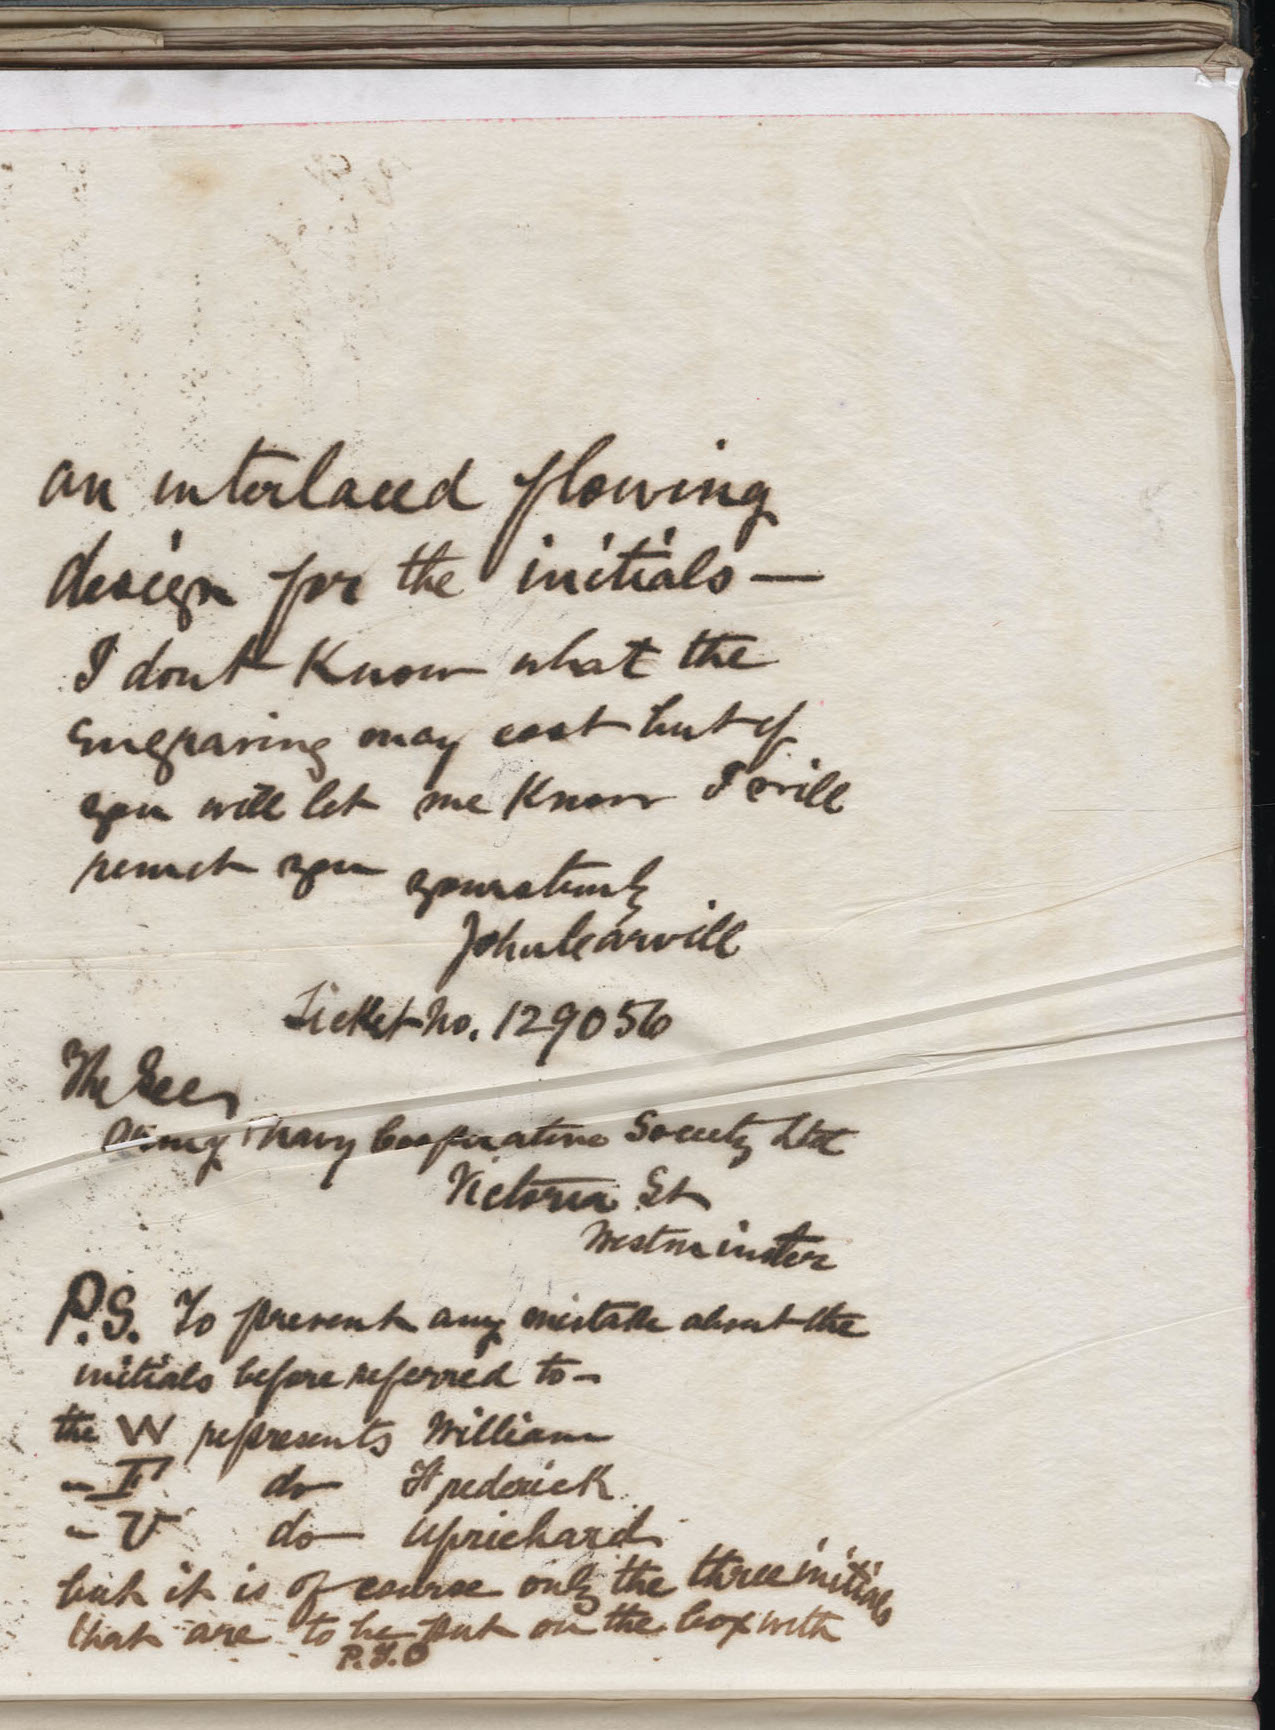 an interlaced flowing
design for the initials —
I dont Know what the
Engraving may cost but if
you will let me Know I will
remit you yours truly
John Carvill
Ticket No. 129056
The Secy
Army & Navy Cooperative Society Ltd
Victoria St
Westminster
P.S. To prevent any mistake about the
initials before referred to -
the W represents William
- F do Frederick
- U do Uprichard
but it is of course only the three initials
that are to be put on the box with
P.T.O